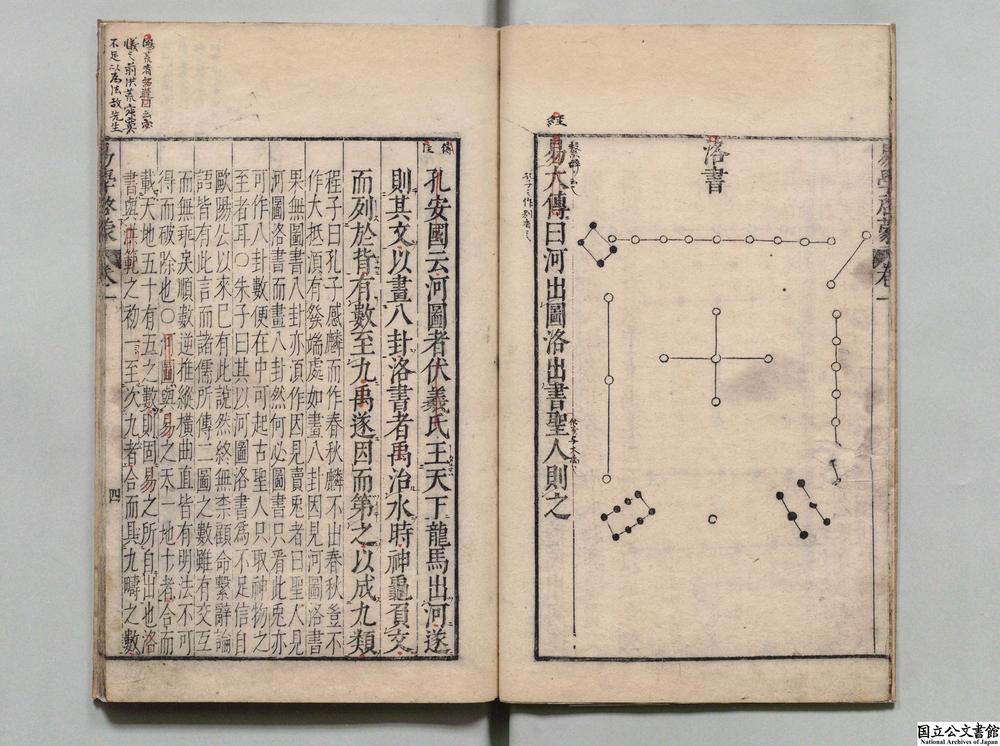 易學啓蒙 卷一
洛書
經
易大傳曰河出圖洛出書聖人則之
傳
孔安國云河圖者伏羲氏王天下龍馬出河遂
則其文以畫八卦洛書者禹治水時神龜負文
而列於背有數至九禹遂因而第之以成九類
程子曰孔子感麟而作春秋麟不出春秋豈不
作大抵須有發端處如畫八卦因見河圖洛書
果無圖書八卦亦須作因見賣兎者曰聖人見
河圖洛書而畫八卦然何必圖書只看此兎亦
可作八卦數便在中可起古聖人只取神物之
至者耳○朱子曰其以河圖洛書爲不足信自
歐陽公以來已有此說然終無柰顧命繫辭論
語皆有此言而諸儒所傳二圖之數雖有交互
而無乖戾順數逆推縱橫曲直皆有明法不可
得而破除也○河圖與易之天一地十者合而
載天地五十有五之數則固易之所自出也洛
書與洪範之初一至次九者合而具九疇之數
易學啓蒙 卷一
四
不足以爲法故先生
国立公文書館
National Archives of Japan